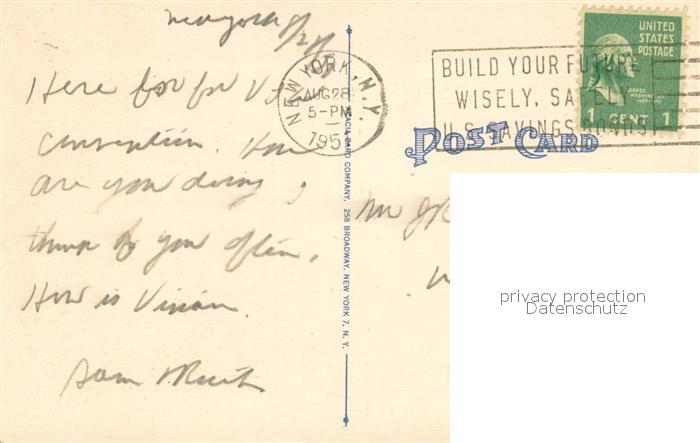 New York 8/28
Here for for V J
Convention. How
are you doing, I
think of you often.
How is Vivian.
Sam
NEW YORK, N.Y.
AUG 28
5-PM
195
BUILD YOUR FUTURE
WISELY, SAFELY
U.S. SAVINGS BONDS
UNITED
STATES
POSTAGE
GEORGE
WASHINGTON
1 CENT 1
POST CARD
ACACIA CARD COMPANY, 258 BROADWAY, NEW YORK 7, N. Y.
Mr
privacy protection
Datenschutz